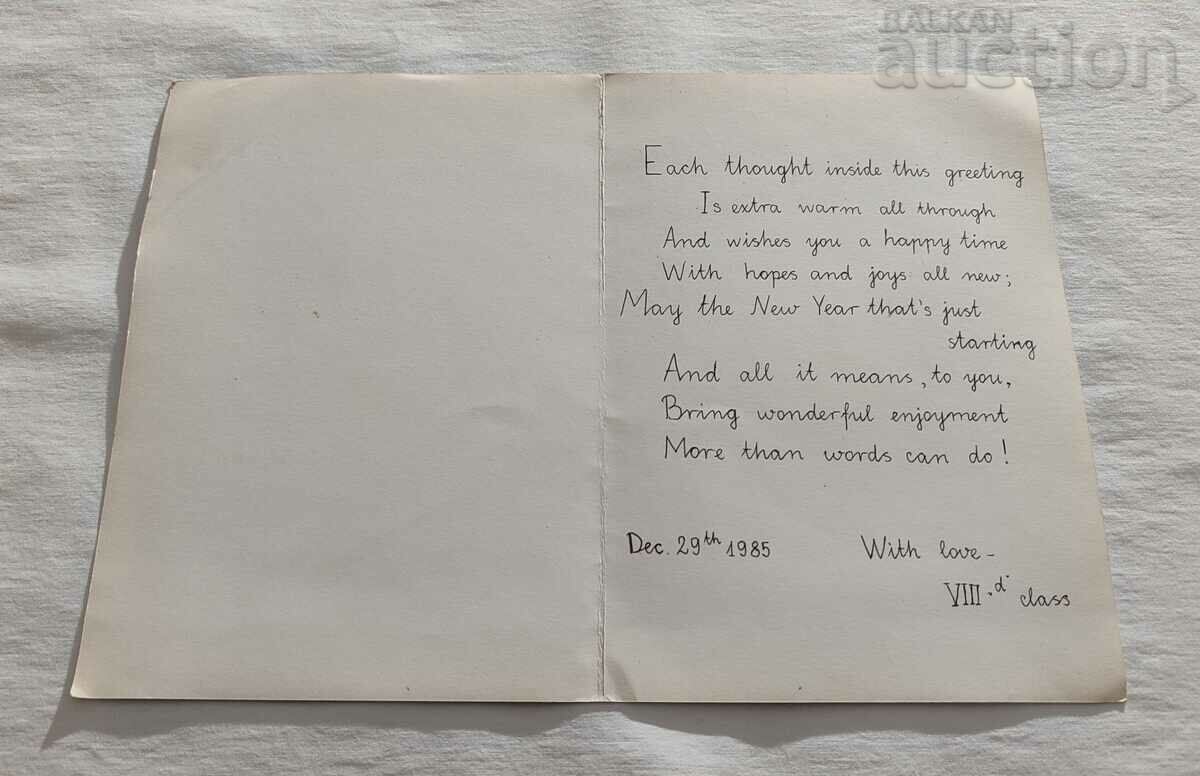 BALKAN
auction
Each thought inside this greeting
Is extra warm all through
And wishes you a happy time
With hopes and joys all new;
May the New Year that's just
starting
And all it means, to you,
Bring wonderful enjoyment
More than words can do!
Dec. 29th 1985 With love -
VIII.d. class